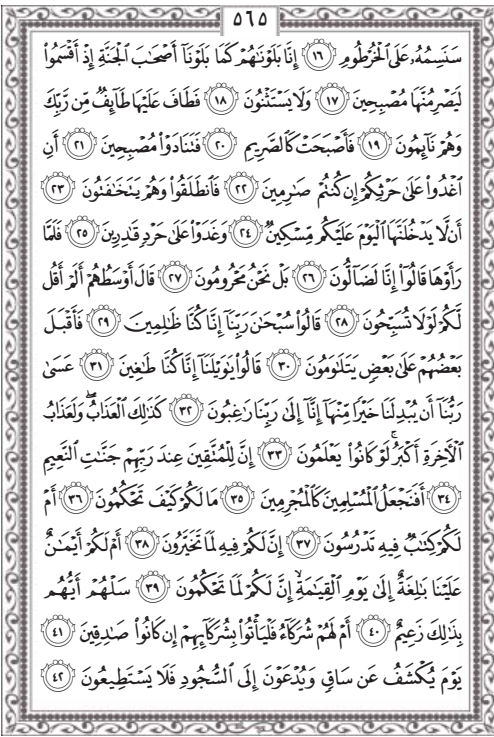 ٥٦٥
سَنَسِمُهُۥ عَلَى ٱلْخُرْطُومِ ١٦ إِنَّا بَلَوْنَـٰهُمْ كَمَا بَلَوْنَآ أَصْحَـٰبَ ٱلْجَنَّةِ إِذْ أَقْسَمُوا۟
لَيَصْرِمُنَّهَا مُصْبِحِينَ ١٧ وَلَا يَسْتَثْنُونَ ١٨ فَطَافَ عَلَيْهَا طَآئِفٌ مِّن رَّبِّكَ
وَهُمْ نَآئِمُونَ ١٩ فَأَصْبَحَتْ كَٱلصَّرِيمِ ٢٠ فَتَنَادَوْا۟ مُصْبِحِينَ ٢١ أَنِ
ٱغْدُوا۟ عَلَىٰ حَرْثِكُمْ إِن كُنتُمْ صَـٰرِمِينَ ٢٢ فَٱنطَلَقُوا۟ وَهُمْ يَتَخَـٰفَتُونَ ٢٣
أَن لَّا يَدْخُلَنَّهَا ٱلْيَوْمَ عَلَيْكُم مِّسْكِينٌ ٢٤ وَغَدَوْا۟ عَلَىٰ حَرْدٍ قَـٰدِرِينَ ٢٥ فَلَمَّا
رَأَوْهَا قَالُوٓا۟ إِنَّا لَضَآلُّونَ ٢٦ بَلْ نَحْنُ مَحْرُومُونَ ٢٧ قَالَ أَوْسَطُهُمْ أَلَمْ أَقُل
لَّكُمْ لَوْلَا تُسَبِّحُونَ ٢٨ قَالُوا۟ سُبْحَـٰنَ رَبِّنَآ إِنَّا كُنَّا ظَـٰلِمِينَ ٢٩ فَأَقْبَلَ
بَعْضُهُمْ عَلَىٰ بَعْضٍ يَتَلَـٰوَمُونَ ٣٠ قَالُوا۟ يَـٰوَيْلَنَآ إِنَّا كُنَّا طَـٰغِينَ ٣١ عَسَىٰ
رَبُّنَآ أَن يُبْدِلَنَا خَيْرًا مِّنْهَآ إِنَّآ إِلَىٰ رَبِّنَا رَٰغِبُونَ ٣٢ كَذَٰلِكَ ٱلْعَذَابُ ۖ وَلَعَذَابُ
ٱلْـَٔاخِرَةِ أَكْبَرُ ۚ لَوْ كَانُوا۟ يَعْلَمُونَ ٣٣ إِنَّ لِلْمُتَّقِينَ عِندَ رَبِّهِمْ جَنَّـٰتِ ٱلنَّعِيمِ
٣٤ أَفَنَجْعَلُ ٱلْمُسْلِمِينَ كَٱلْمُجْرِمِينَ ٣٥ مَا لَكُمْ كَيْفَ تَحْكُمُونَ ٣٦ أَمْ
لَكُمْ كِتَـٰبٌ فِيهِ تَدْرُسُونَ ٣٧ إِنَّ لَكُمْ فِيهِ لَمَا تَخَيَّرُونَ ٣٨ أَمْ لَكُمْ أَيْمَـٰنٌ
عَلَيْنَا بَـٰلِغَةٌ إِلَىٰ يَوْمِ ٱلْقِيَـٰمَةِ ۙ إِنَّ لَكُمْ لَمَا تَحْكُمُونَ ٣٩ سَلْهُمْ أَيُّهُم
بِذَٰلِكَ زَعِيمٌ ٤٠ أَمْ لَهُمْ شُرَكَآءُ فَلْيَأْتُوا۟ بِشُرَكَآئِهِمْ إِن كَانُوا۟ صَـٰدِقِينَ ٤١
يَوْمَ يُكْشَفُ عَن سَاقٍ وَيُدْعَوْنَ إِلَى ٱلسُّجُودِ فَلَا يَسْتَطِيعُونَ ٤٢